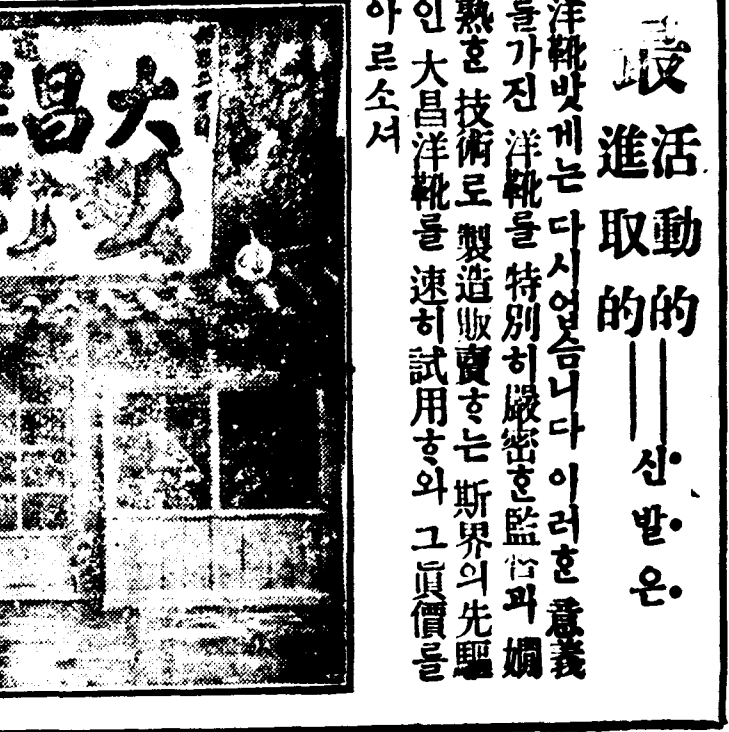 最
活動的
進取的
신발은
洋靴밧게는 다시업슴니다 이러ᄒᆞᆫ 意義
를가진 洋靴를 特別히嚴密ᄒᆞᆫ監督과 嫺
熟ᄒᆞᆫ 技術로 製造販賣ᄒᆞ는 斯界의 先驅
인 大昌洋靴를 速히試用ᄒᆞ와 그眞價를
아르소셔
大昌